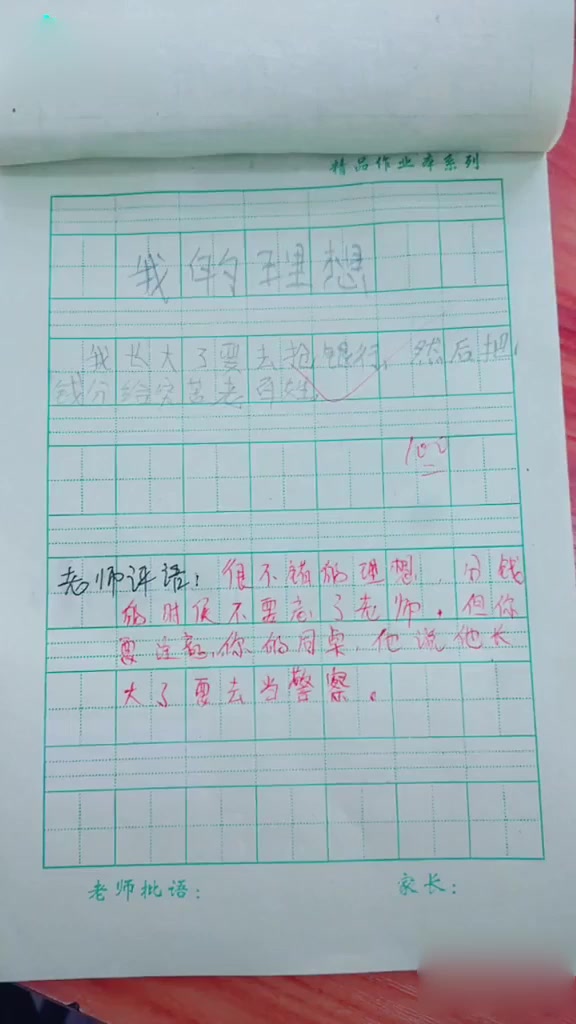 精品作业本系列
我的理想
我长大了要去抢银行，然后把
钱分给穷苦老百姓。
100
老师评语：很不错的理想，分钱
的时候不要忘了老师。但你
要注意，你的同桌，他说他长
大了要去当警察。
老师批语：
家长：